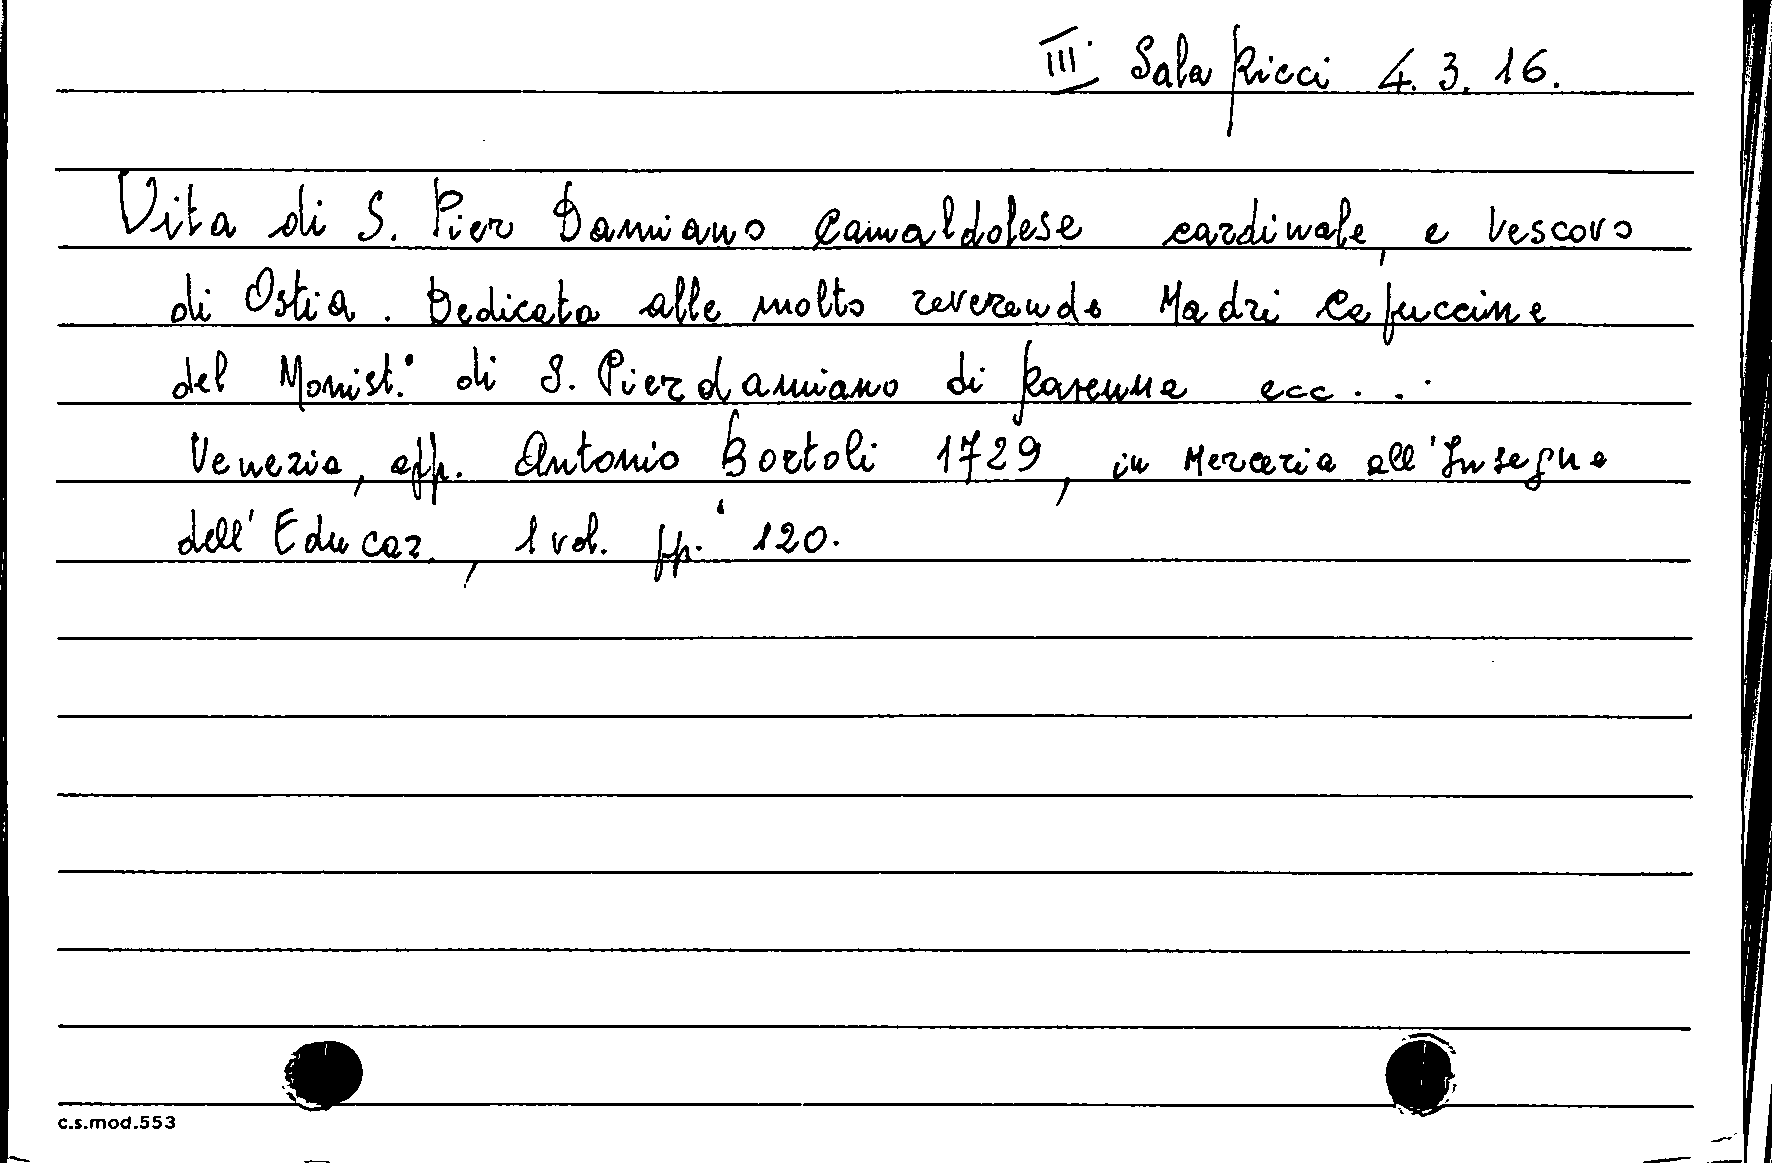 III. Sala Ricci 4.3.16.
Vita di S. Pier Damiano Camaldolese cardinale, e Vescovo
di Ostia. Dedicata alle molto reverende Madri Capuccine
del Monist.° di S. Pierdamiano di Ravenna ecc...
Venezia, app. Antonio Bortoli 1729, in Merceria all'Insegna
dell'Educaz., 1 vol. pp. 120.
c.s.mod.553